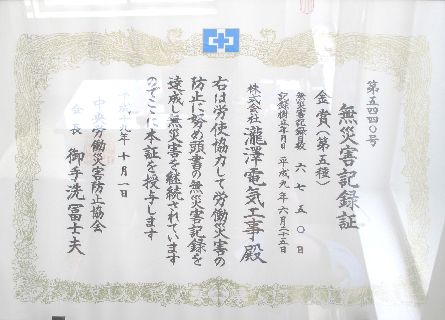 第五四四〇号
無災害記録証
金賞（第五種）
無災害記録日数 六七五〇日
記録樹立年月日 平成九年六月二十五日
株式会社 瀧澤電気工事 殿
右は労使協力して労働災害の
防止に努め頭書の無災害記録を
達成し無災害を継続されています
のでここに本証を授与します
平成十九年十月一日
中央労働災害防止協会
会長 御手洗冨士夫